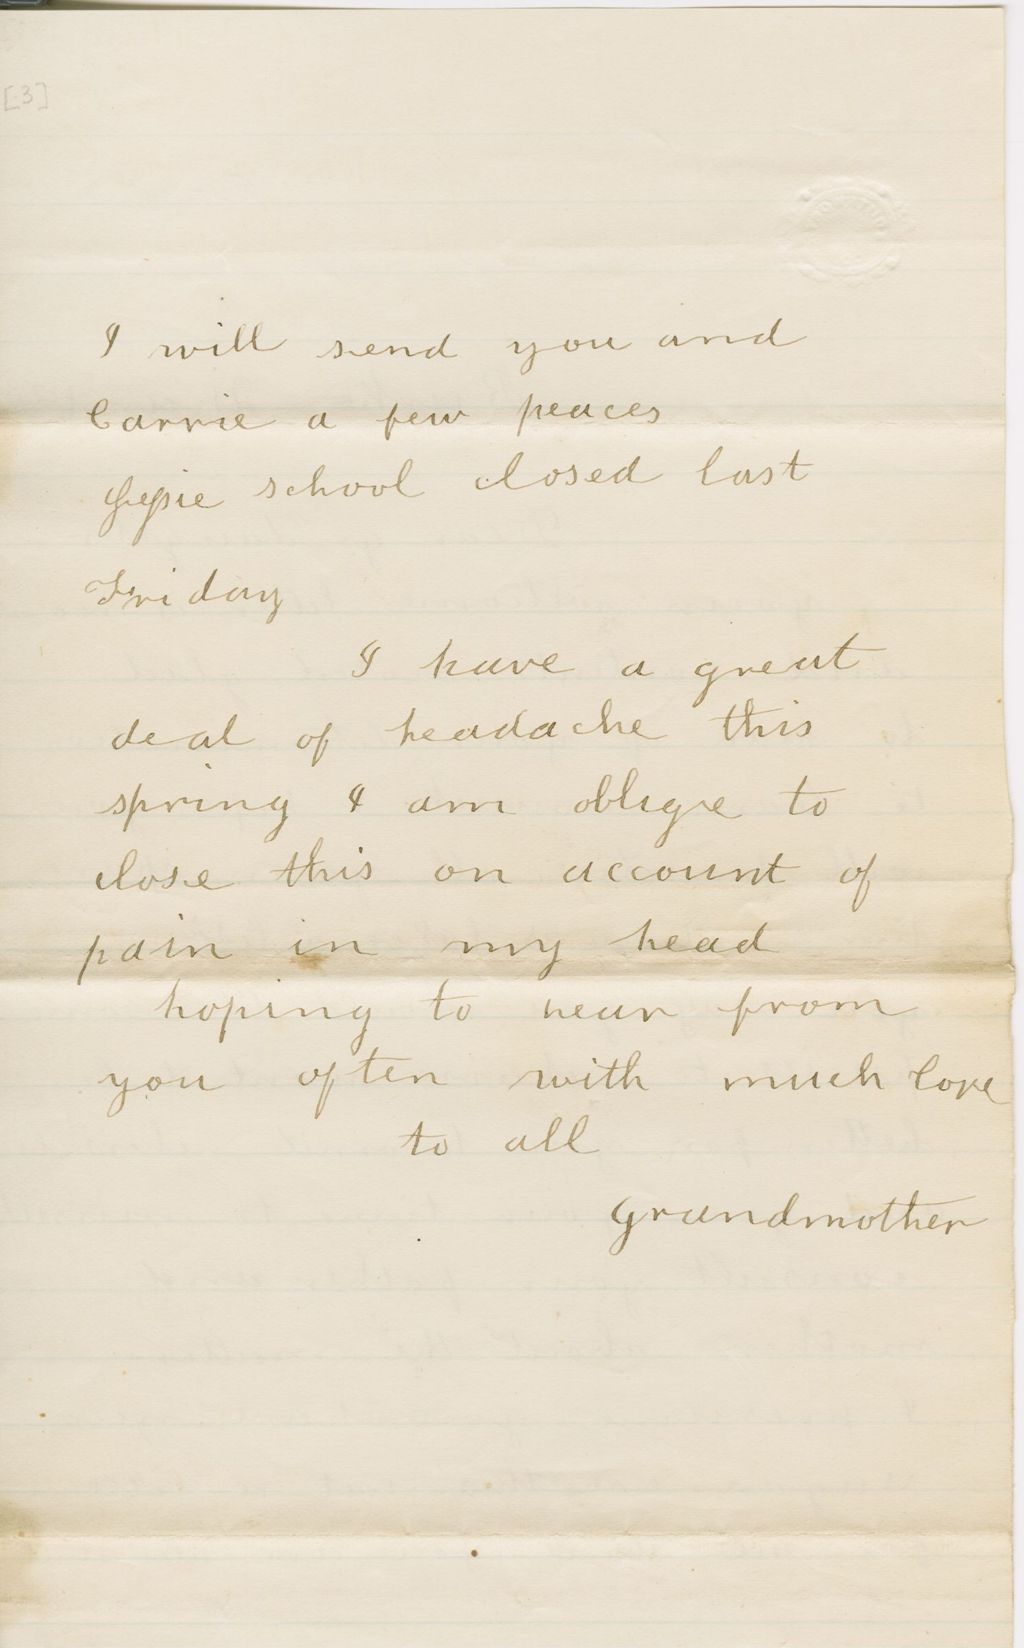 [3]
I will send you and
Carrie a few peaces
school closed last
Friday
I have a great
deal of headache this
spring I am oblige to
close this on account of
pain in my head
hoping to hear from
you often with much love
to all
Grandmother